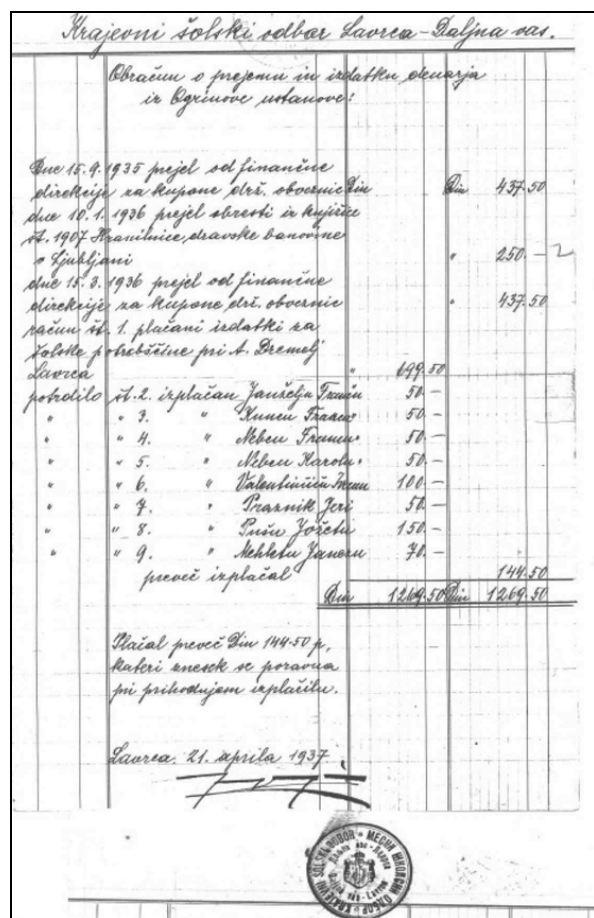 Krajevni šolski odbor Lavrca-Daljna vas.
Obračun o prejemu in izdatku denarja
iz Ogrinove ustanove:
Dne 15.9.1935 prejel od finančne
direkcije za kupone drž. obveznic Din Din 437.50
dne 10.1.1936 prejel obresti iz knjižice
št. 1907 Hranilnice dravske banovine
v Ljubljani " 250.-
dne 15.3.1936 prejel od finančne
direkcije za kupone drž. obveznic " 437.50
račun št. 1. plačani izdatki za
šolske potrebščine pri A. Dremelj
Lavrca " 699.50
potrdilo št. 2. izplačan Janželju Franu 50.-
" " 3. " 50.-
" " 4. " 50.-
" " 5. " 50.-
" " 6. " 100.-
" " 7. " Praznik Jeri 50.-
" " 8. " Jožetu 150.-
" " 9. " Janezu 70.-
preveč izplačal 144.50
Din 1269.50 Din 1269.50
Plačal preveč Din 144.50 p,
kateri znesek se poravna
pri prihodnjem izplačilu.
Lavrca. 21. aprila 1937